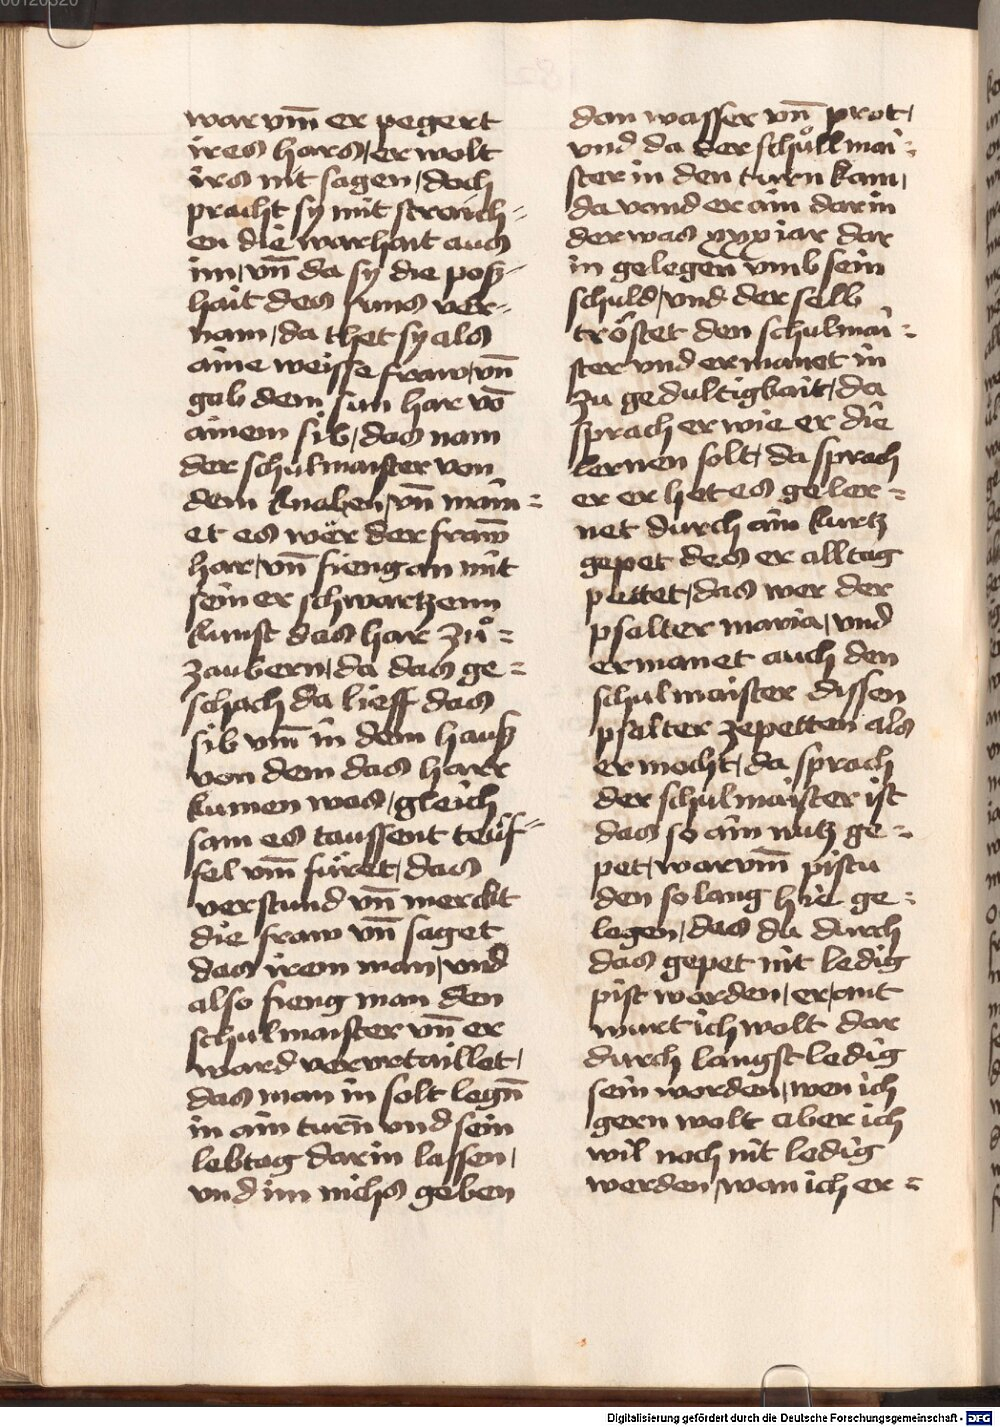 war vm̄ er pegert
ires hars / er wolt
irs nit sagen / doch
pracht sy mit straich=
en die warhait aus
im / vn̄ da sy die posz=
hait des suns ver=
nam / da thet sy als
aine weisse fraw / vn̄
gab dem sun har vō
ainem sib / das nam
der schulmaister von
dem knaben / vn̄ main=
et es wër der fraw̄
har / vn̄ fieng an mit
sein er schwartzenn
kunst das har zů=
zaubern / da das ge=
schach da lieff das
sib vm̄ in dem hausz
von dem das harr
kumen was / gleich
sam es taussent teüf=
fel vm̄ füret / das
verstund vn̄ merckt
die fraw vn̄ saget
das irem man / vnd
also fieng man den
schulmaister vn̄ er
ward vervrtaillet /
das man in solt legn̄
in ain turn̄ vnd sein
lebtag darin lassen /
vnd im nichs geben
dan wasser vn̄ prot /
vnd da der schůllmai=
ster in den turn kam /
da vand er ain darin
der was xxx iar dar
in gelegen vmb sein
schuld / vnd der selb
tröstet den schulmai=
ster vnd ermanet in
zu gedultigkait / da
sprach er wie er die
lernen solt / da sprach
er er het es geler=
net durch ain kurtz
gepet des er alltag
pettet / das wer der
psalter maria / vnd
ermanet auch den
schulmaister dissen
psalter zepetten als
er mocht / da sprach
der schulmaister ist
das so ain nutz ge=
pet / warvm̄ pistu
den so lang hie ge=
legen / das du durch
das gepet nit ledig
pist worden / er / ant
wurt ich wolt dar
durch langst ledig
sein worden / wen ich
gern wolt aber ich
wil noch nit ledig
werden / wan ich er=
Digitalisierung gefördert durch die Deutsche Forschungsgemeinschaft - DFG